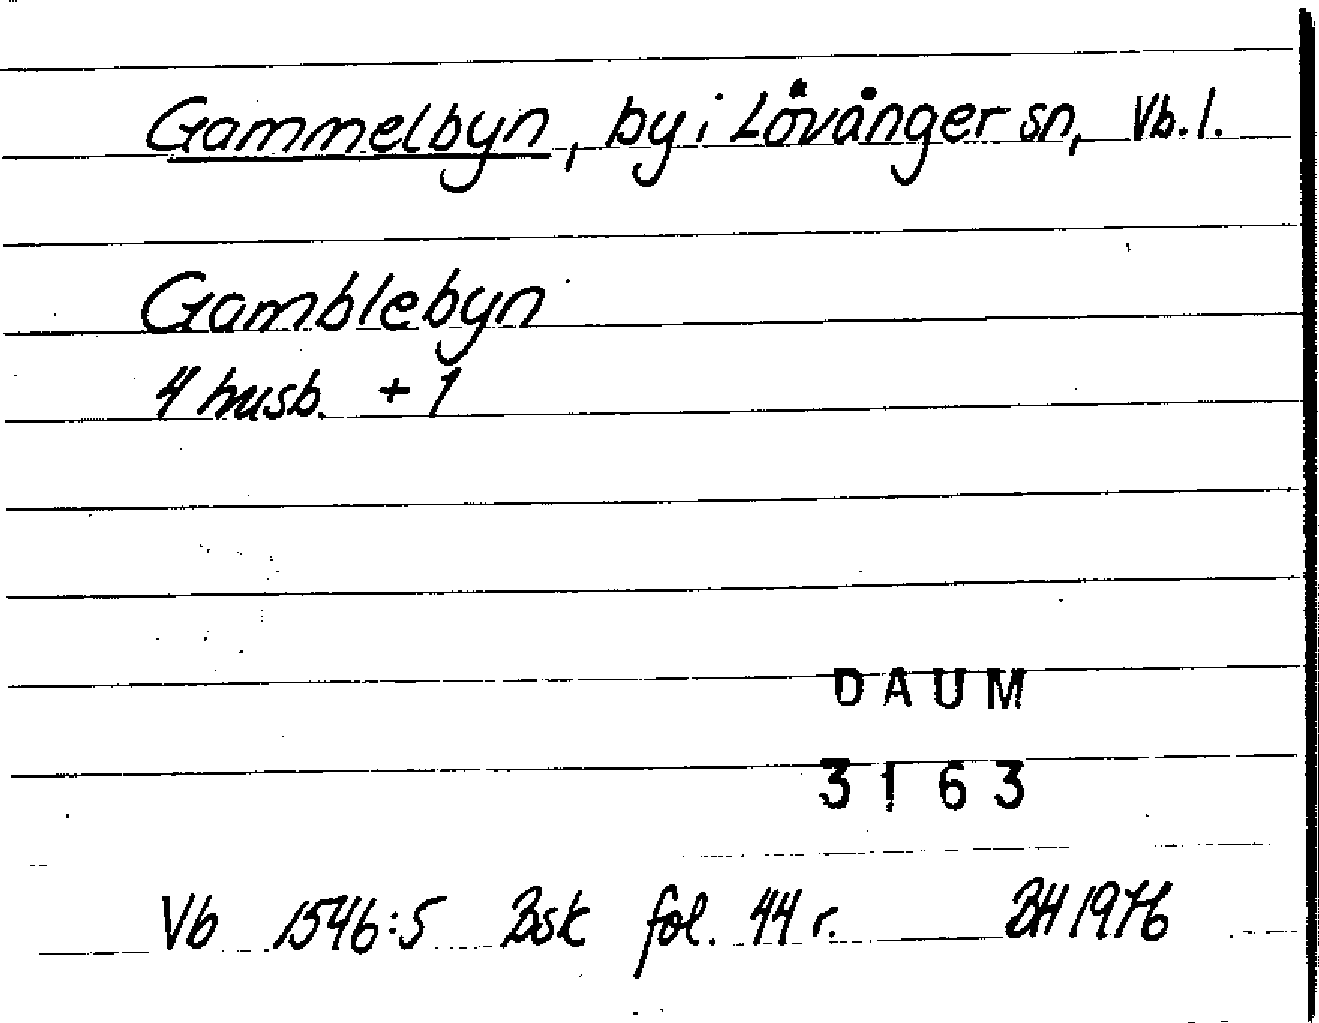 Gammelbyn, by i Lövånger sn, Vb. l.
Gamblebyn
4 husb. + 1
DAUM
3163
Vb 1546:5 Bsk fol. 44 r. BH 1976